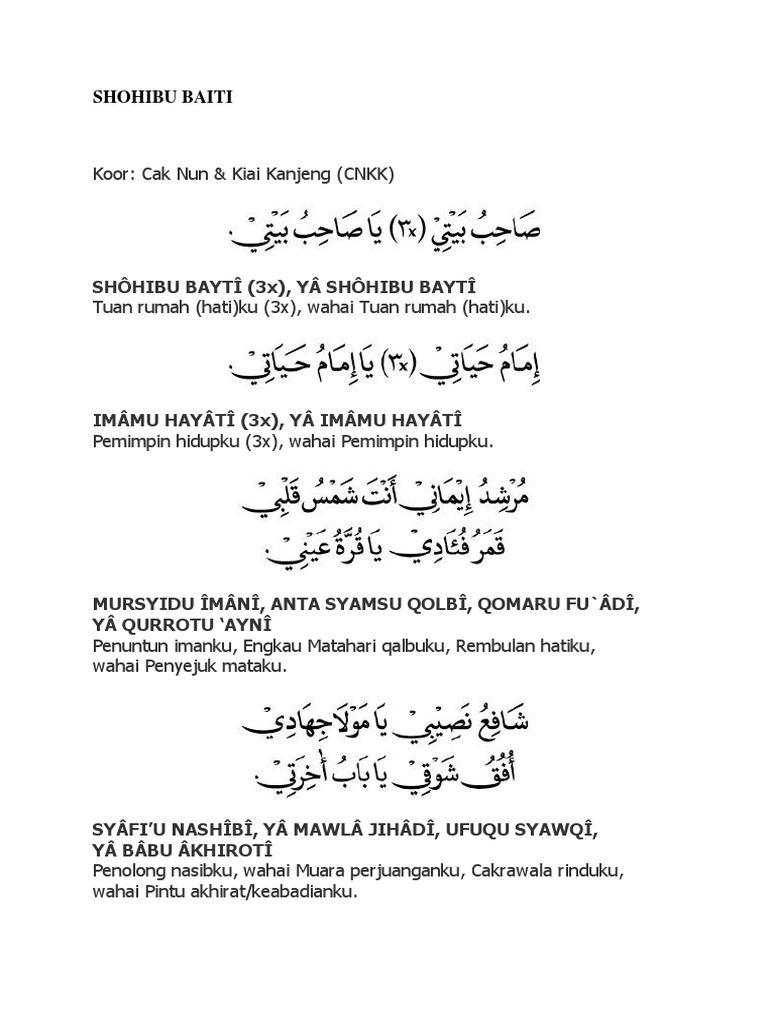 SHOHIBU BAITI
Koor: Cak Nun & Kiai Kanjeng (CNKK)
صَاحِبُ بَيْتِيْ (٣x) يَا صَاحِبُ بَيْتِيْ.
SHÔHIBU BAYTÎ (3x), YÂ SHÔHIBU BAYTÎ
Tuan rumah (hati)ku (3x), wahai Tuan rumah (hati)ku.
إِمَامُ حَيَاتِيْ (٣x) يَا إِمَامُ حَيَاتِيْ.
IMÂMU HAYÂTÎ (3x), YÂ IMÂMU HAYÂTÎ
Pemimpin hidupku (3x), wahai Pemimpin hidupku.
مُرْشِدُ إِيْمَانِيْ أَنْتَ شَمْسُ قَلْبِيْ
قَمَرُ فُئَادِيْ يَا قُرَّةُ عَيْنِيْ.
MURSYIDU ÎMÂNÎ, ANTA SYAMSU QOLBÎ, QOMARU FU`ÂDÎ,
YÂ QURROTU ‘AYNÎ
Penuntun imanku, Engkau Matahari qalbuku, Rembulan hatiku,
wahai Penyejuk mataku.
شَافِعُ نَصِيْبِيْ يَا مَوْلَا جِهَادِيْ
أُفُقُ شَوْقِيْ يَا بَابُ أٰخِرَتِيْ.
SYÂFI’U NASHÎBÎ, YÂ MAWLÂ JIHÂDÎ, UFUQU SYAWQÎ,
YÂ BÂBU ÂKHIROTÎ
Penolong nasibku, wahai Muara perjuanganku, Cakrawala rinduku,
wahai Pintu akhirat/keabadianku.